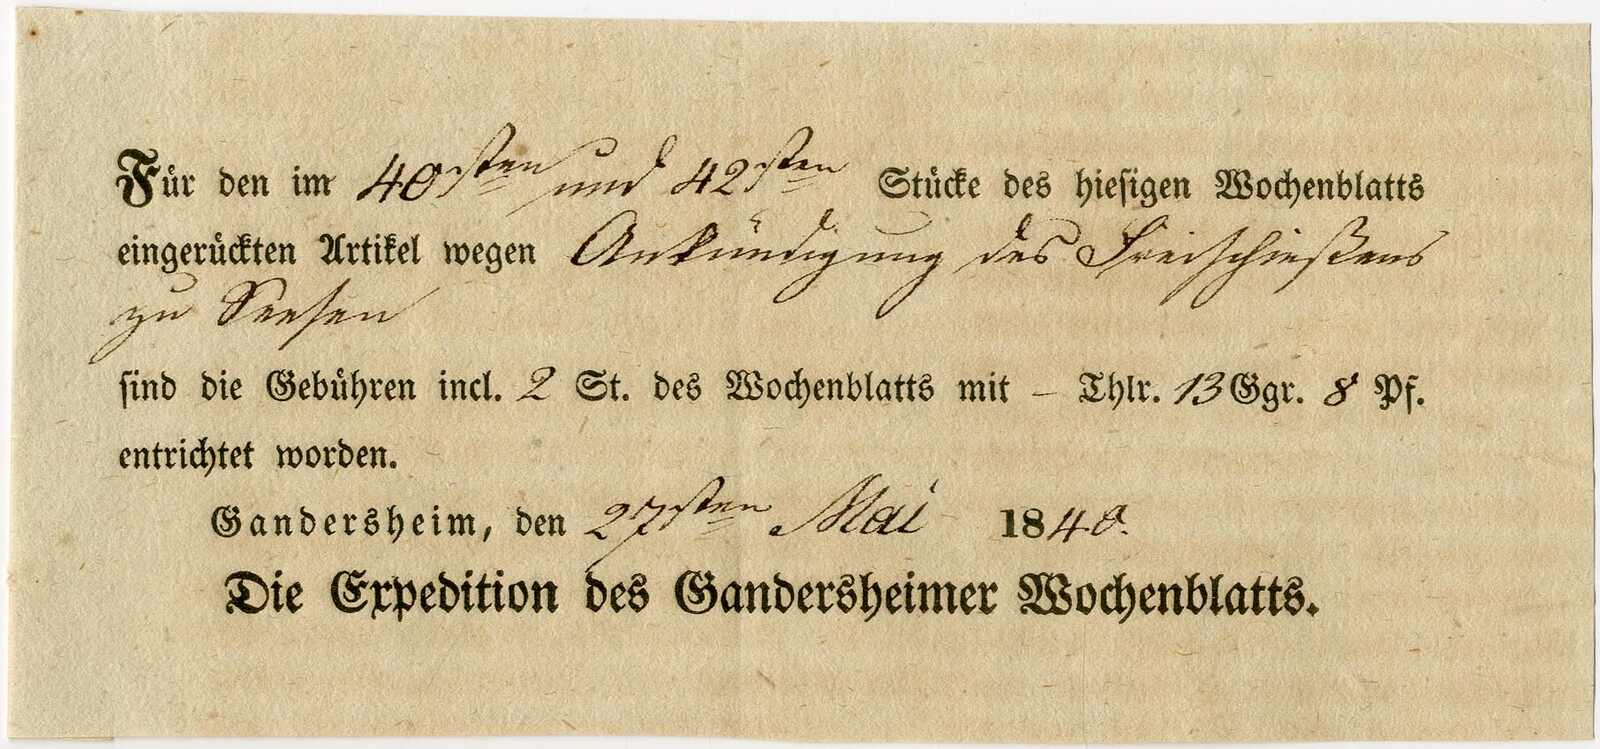 Für den im 40sten und 42sten Stücke des hiesigen Wochenblatts
eingerückten Artikel wegen Ankündigung des Freischießens
zu Seesen
sind die Gebühren incl. 2 St. des Wochenblatts mit – Thlr. 13 Ggr. 8 Pf.
entrichtet worden.
Gandersheim, den 27sten Mai 1840.
Die Expedition des Gandersheimer Wochenblatts.